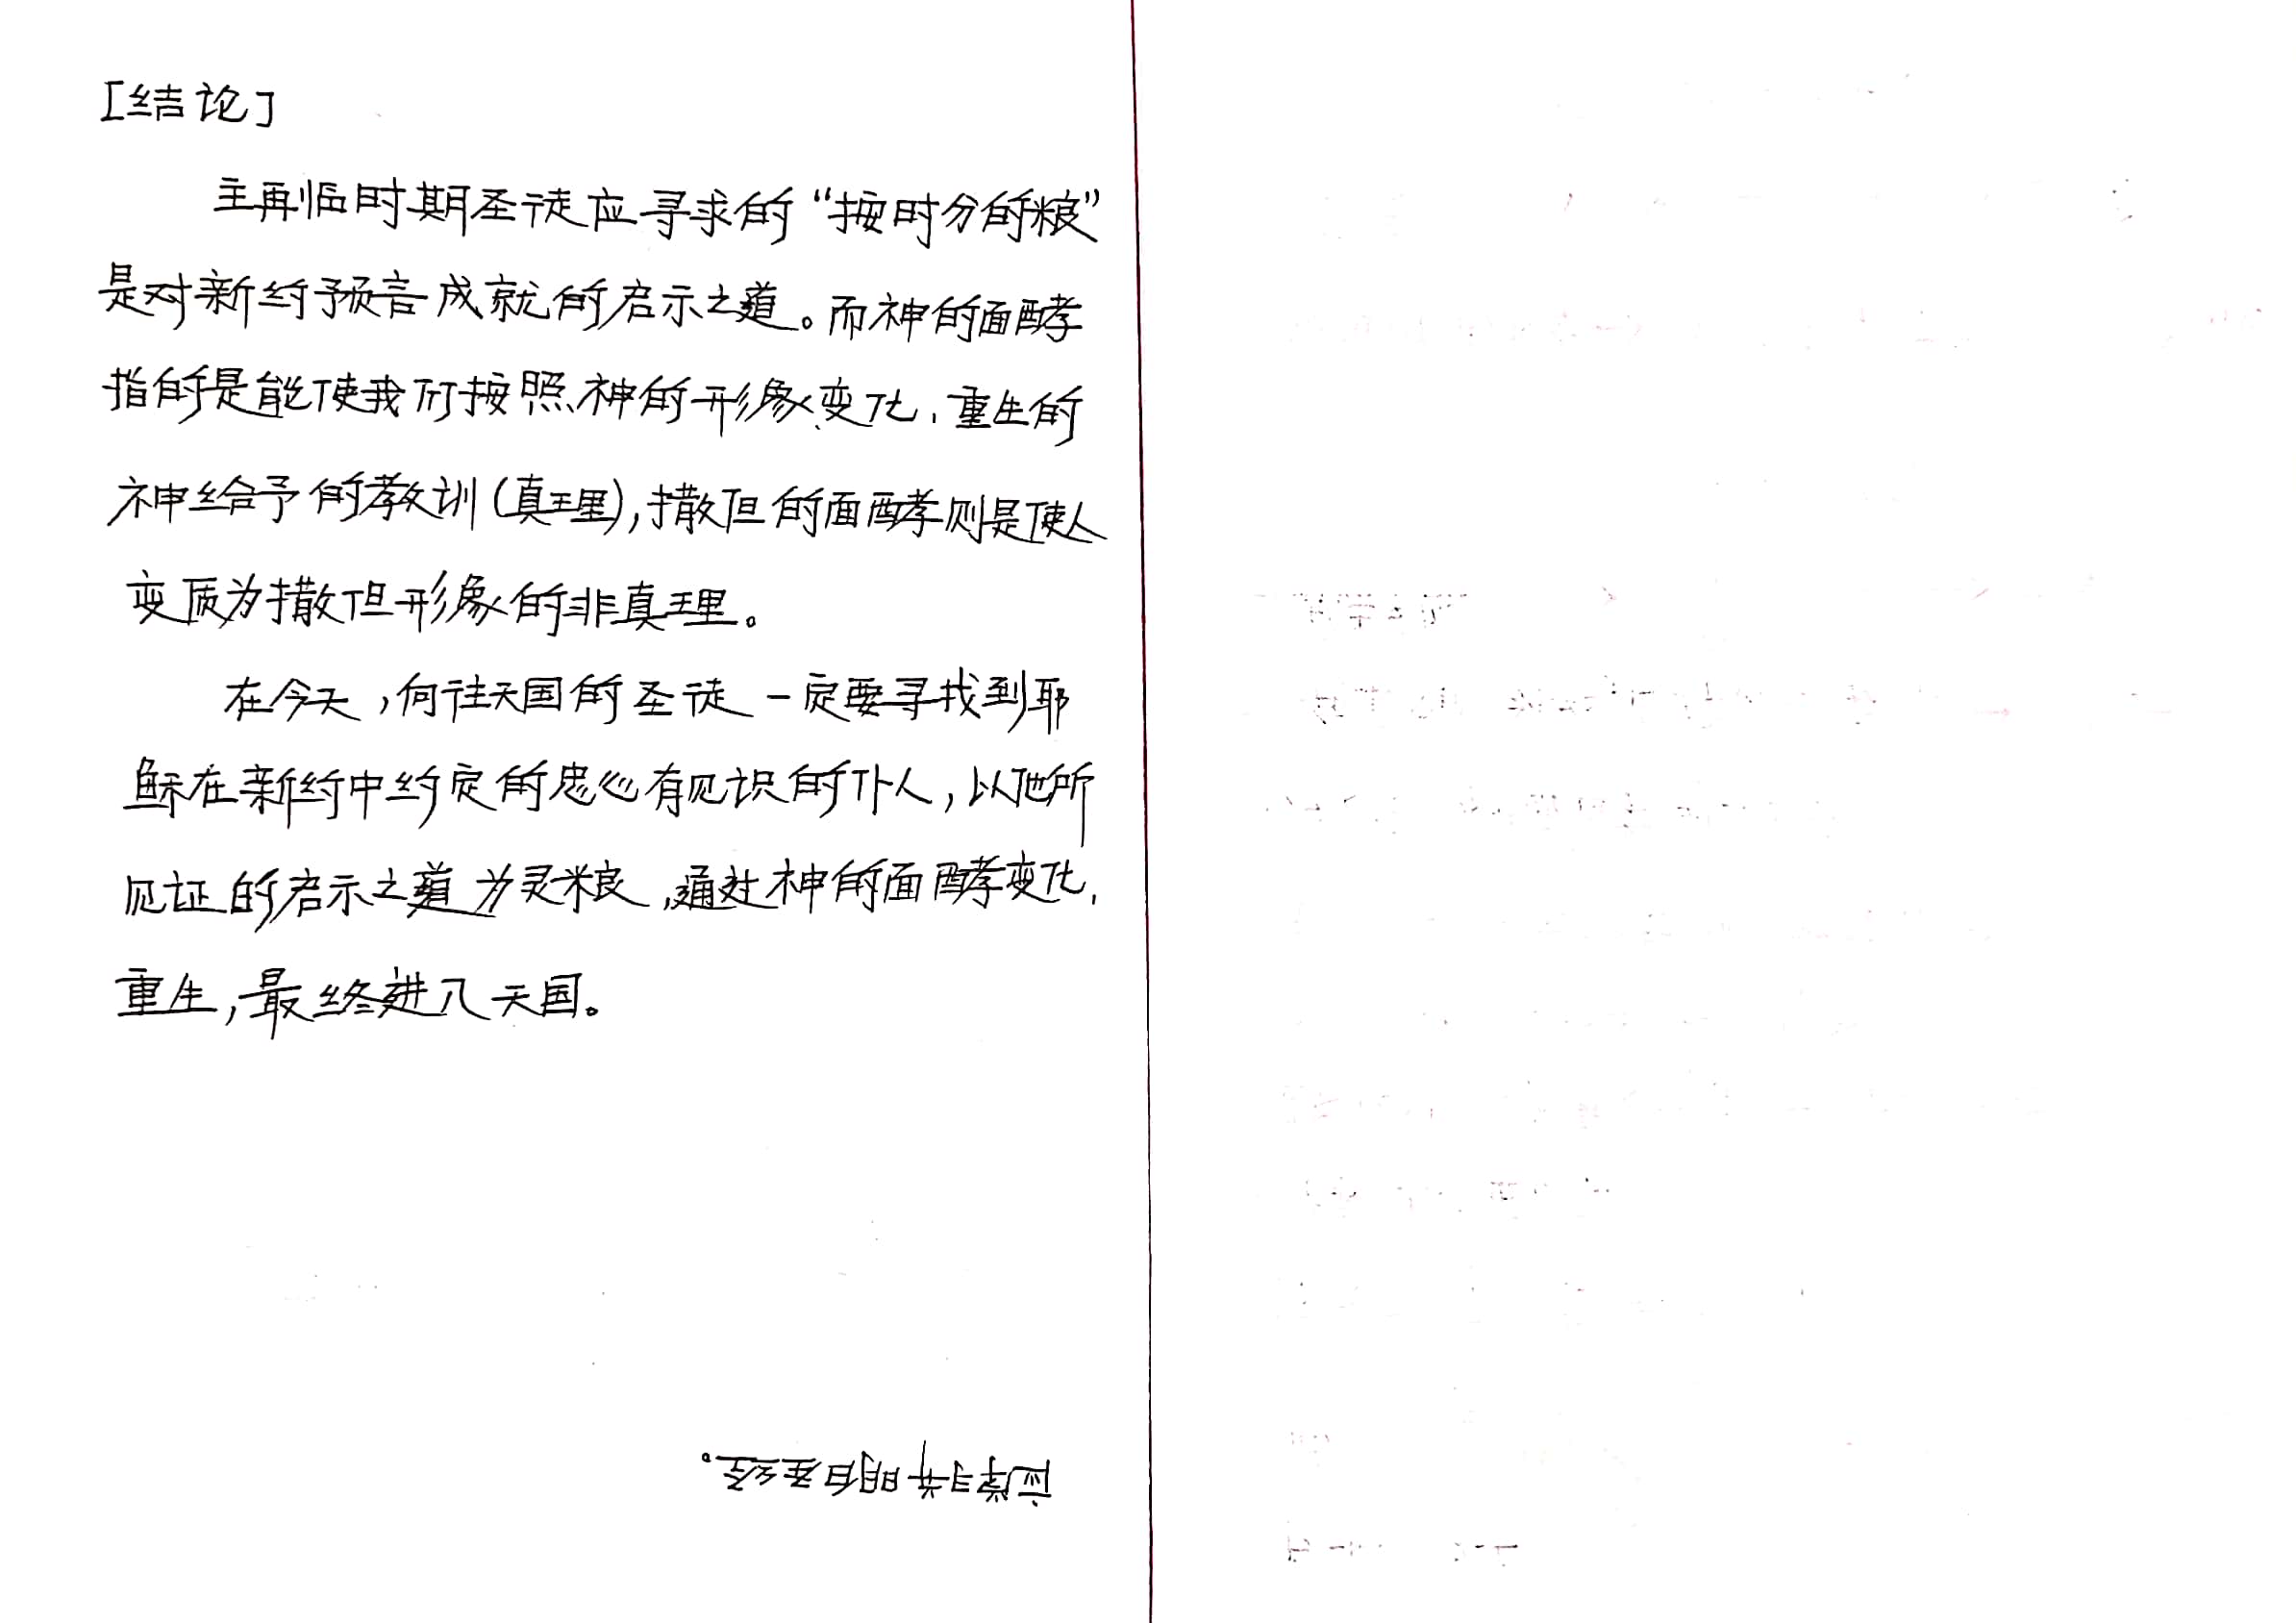 [结论]
主再临时期圣徒应寻求的“按时分的粮”
是对新约预言成就的启示之道。而神的面酵
指的是能使我们按照神的形象变化，重生的
神给予的教训(真理)，撒但的面酵则是使人
变质为撒但形象的非真理。
在今天，向往天国的圣徒一定要寻找到耶
稣在新约中约定的忠心有见识的仆人，以他所
见证的启示之道为灵粮，通过神的面酵变化，
重生，最终进入天国。
应学习并明白圣经。